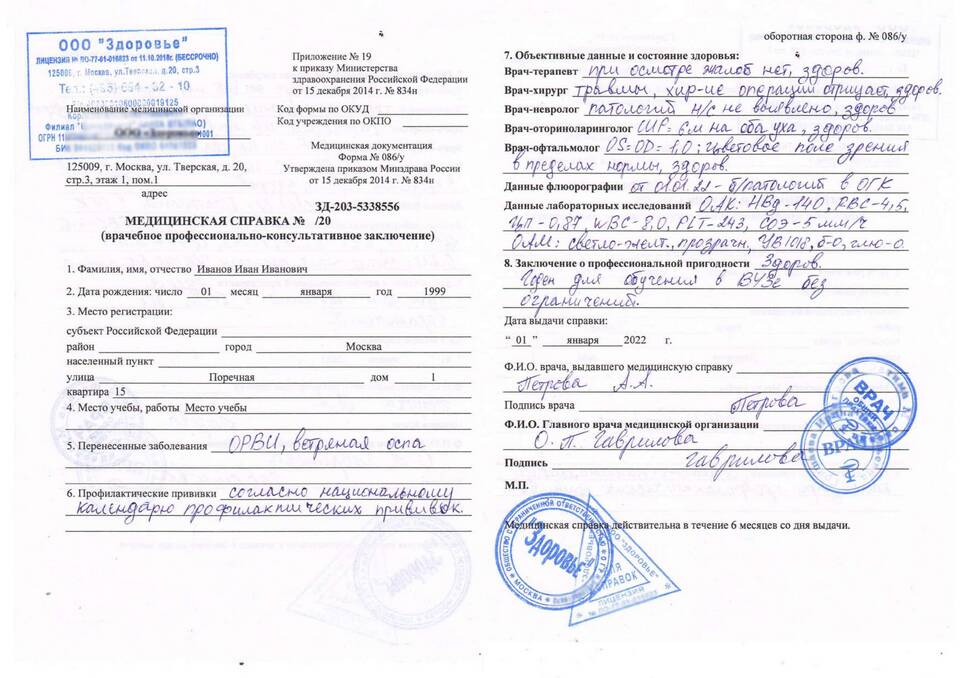 ООО "Здоровье"
ЛИЦЕНЗИЯ № ЛО-77-01-016823 от 11.10.2018г. (БЕССРОЧНО)
125009, г. Москва, ул.Тверская, д.20, стр.3
Наименование медицинской организации
125009, г. Москва, ул. Тверская, д. 20,
стр.3, этаж 1, пом.1
адрес
Приложение № 19
к приказу Министерства
здравоохранения Российской Федерации
от 15 декабря 2014 г. № 834н
Код формы по ОКУД
Код учреждения по ОКПО
Медицинская документация
Форма № 086/у
Утверждена приказом Минздрава России
от 15 декабря 2014 г. № 834н
ЗД-203-5338556
МЕДИЦИНСКАЯ СПРАВКА № /20
(врачебное профессионально-консультативное заключение)
1. Фамилия, имя, отчество Иванов Иван Иванович
2. Дата рождения: число 01 месяц января год 1999
3. Место регистрации:
субъект Российской Федерации
район город Москва
населенный пункт
улица Поречная дом 1
квартира 15
4. Место учебы, работы Место учебы
5. Перенесенные заболевания ОРВИ, ветряная оспа
6. Профилактические прививки согласно национальному
календарю профилактических прививок.
оборотная сторона ф. № 086/у
7. Объективные данные и состояние здоровья:
Врач-терапевт при осмотре жалоб нет, здоров.
Врач-хирург травмы, хир-ие операции отрицает, здоров.
Врач-невролог патологий н/с не выявлено, здоров
Врач-оториноларинголог СШР= 6м на оба уха, здоров.
Врач-офтальмолог OS=OD= 1,0; цветовое поле зрения
в пределах нормы, здоров.
Данные флюорографии от 01.01.22 - б/патологий в ОГК
Данные лабораторных исследований ОАК: HBg-140, RBC-4,5,
ЦП-0,87, WBC-8,0, PLT-243, СОЭ-5 мм/ч
ОАМ: светло-желт., прозрачн, УВ1018, б-0, глю-0.
8. Заключение о профессиональной пригодности Здоров.
Годен для обучения в ВУЗе без
ограничений.
Дата выдачи справки:
" 01 " января 2022 г.
Ф.И.О. врача, выдавшего медицинскую справку
Петрова А.А.
Подпись врача Петрова
Ф.И.О. Главного врача медицинской организации
О. П. Гаврилова
Подпись Гаврилова
М.П.
Медицинская справка действительна в течение 6 месяцев со дня выдачи.
ВРАЧ
ВРАЧ
ОБЩЕСТВО С ОГРАНИЧЕННОЙ ОТВЕТСТВЕННОСТЬЮ
"Здоровье"
МОСКВА
ООО "ЗДОРОВЬЕ"
ДЛЯ
СПРАВОК
ЛИЦЕНЗИЯ